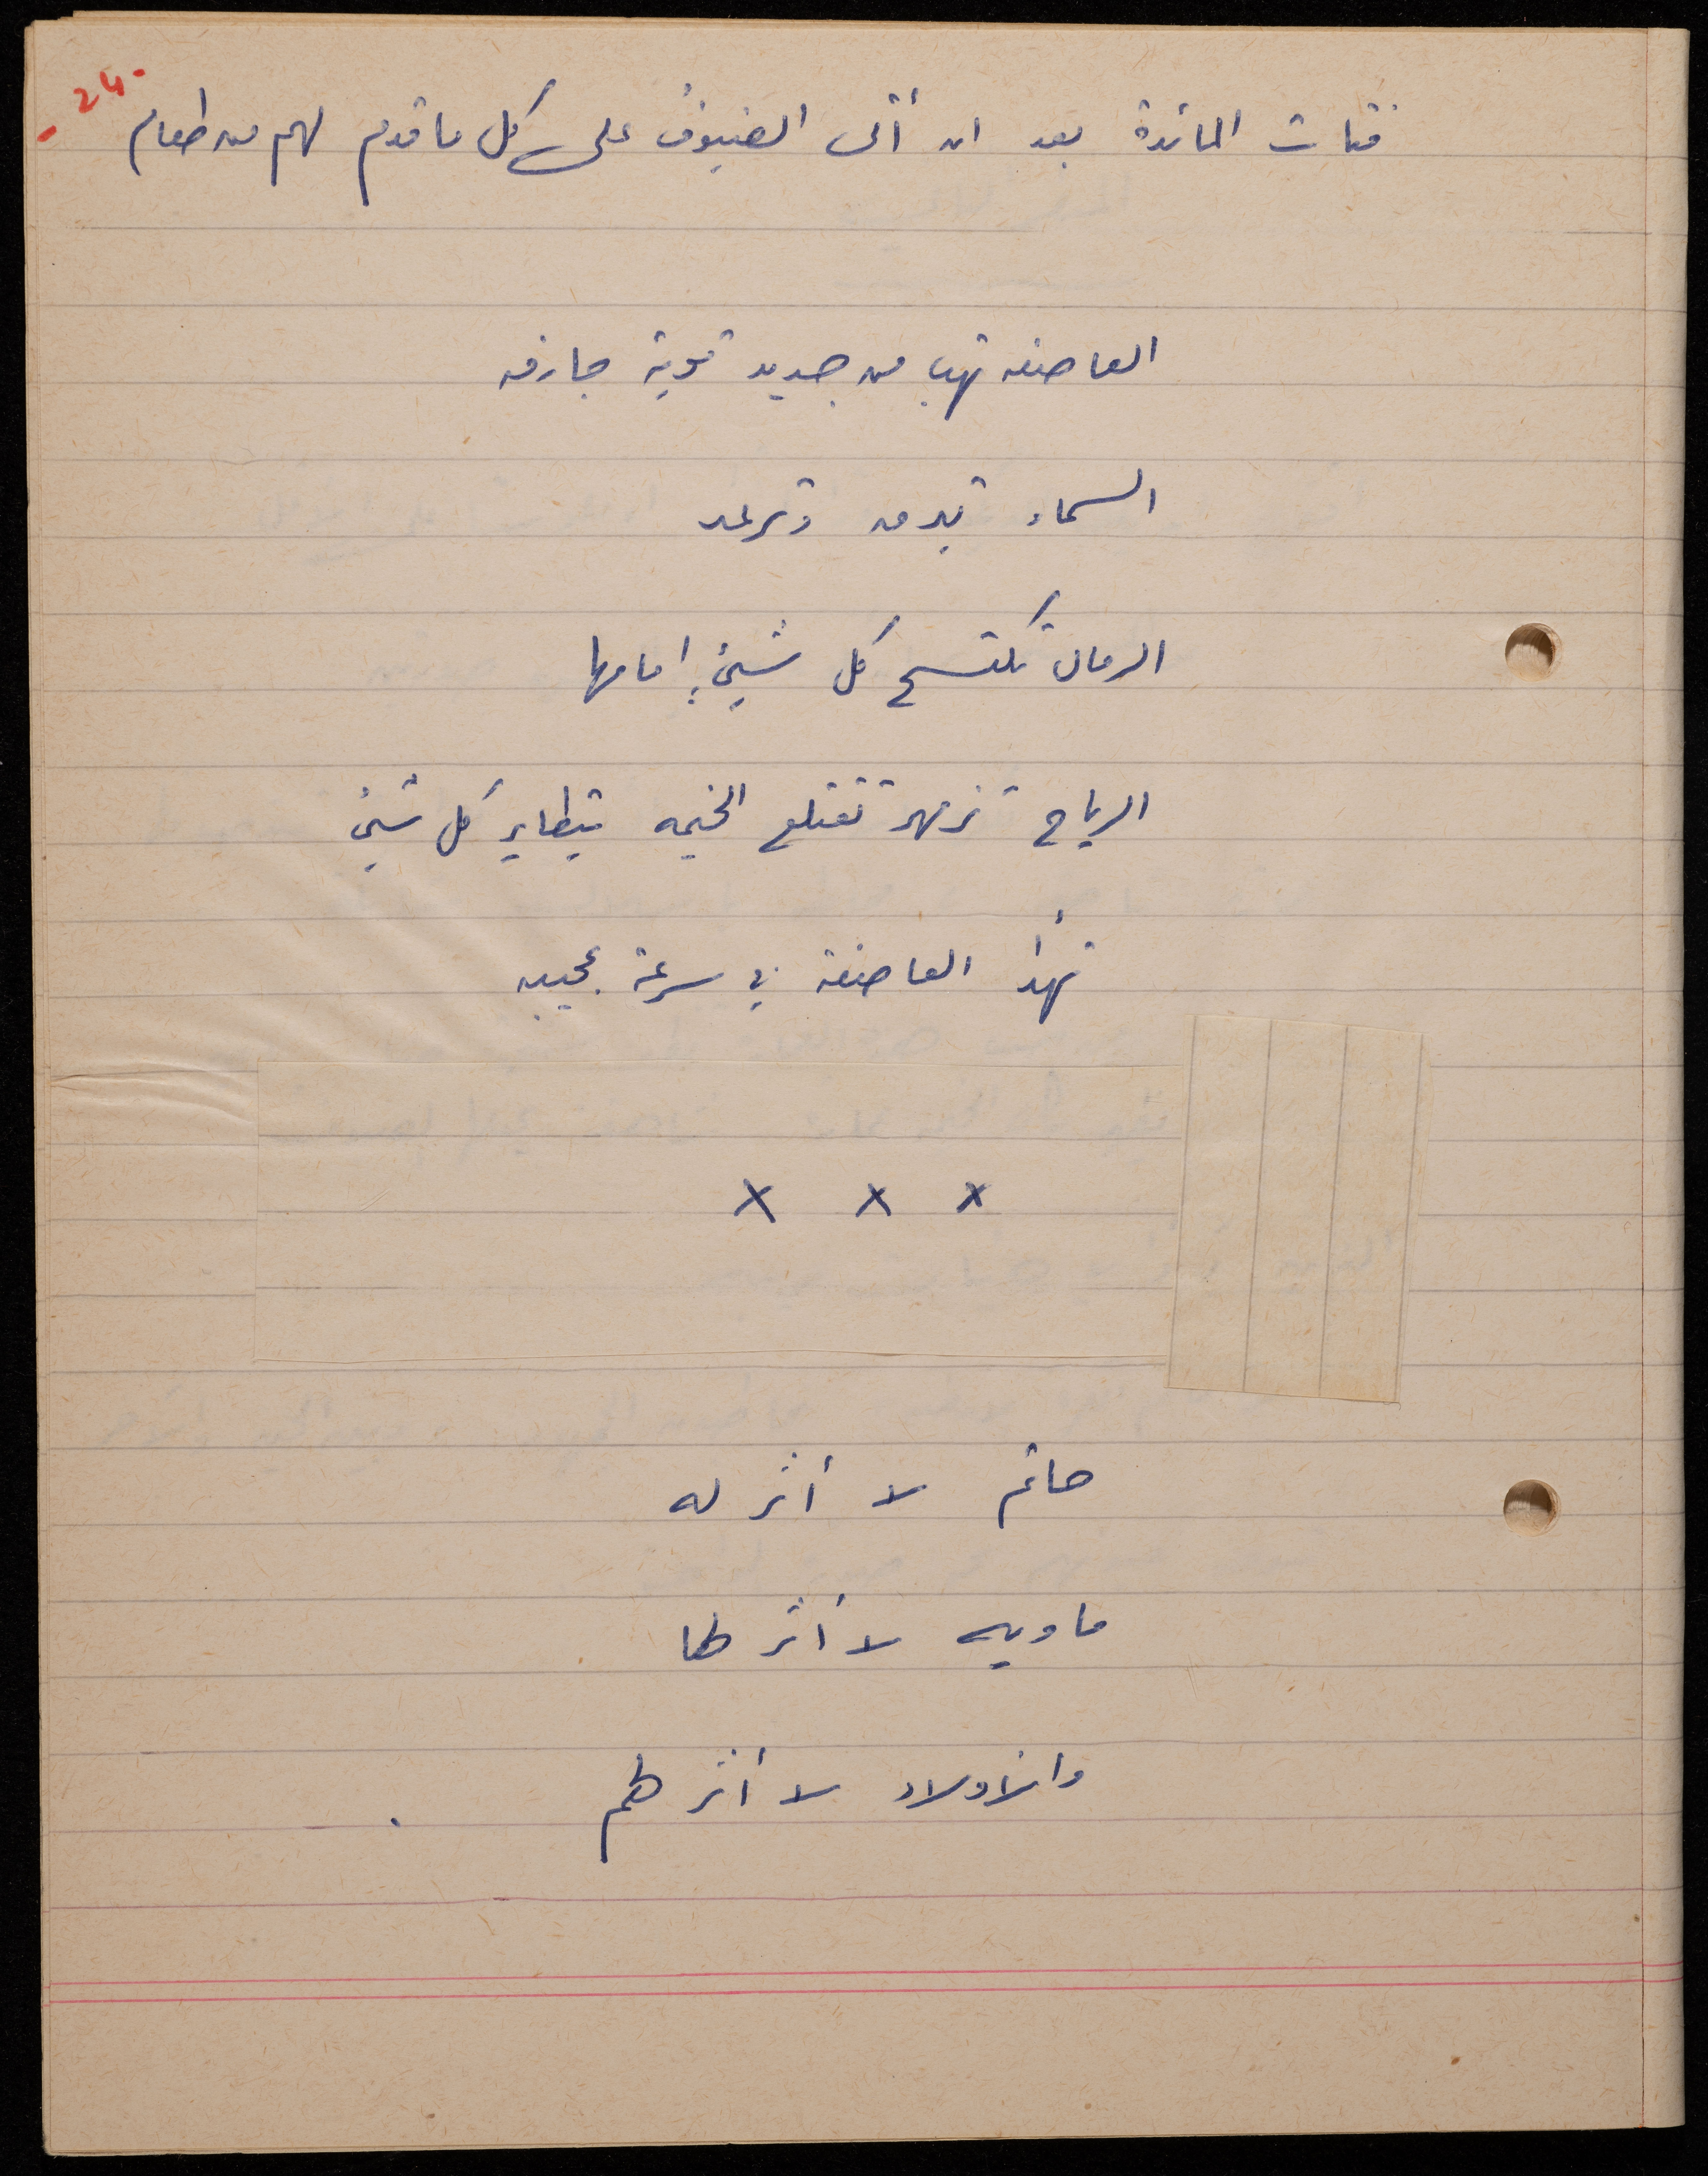 - 24 -
فتات المائدة بعد ان أتى الضيوف على كل ما قدم لهم من طعام
العاصفه تهب من جديد قوية جارفه
السماء تبرق وترعد
الرمال تكتسح كل شيئ امامها
الرياح تزمهر تقتلع الخيمه يتطاير كل شيئ
تهدأ العاصفة في سرعة عجيبه
x x x
حاتم لا أثر له
ماويه لا أثر لها
والاولاد لا أثر لهم .